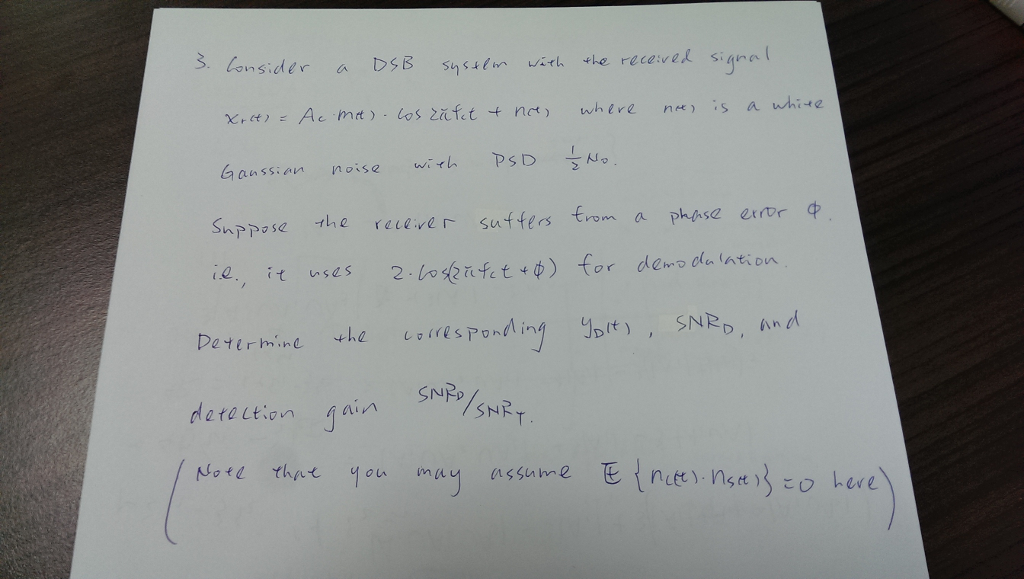 3. Consider a DSB system with the received signal
xr(t) = Ac·m(t)·cos 2πfct + n(t) where n(t) is a white
Gaussian noise with PSD 1/2 No.
Suppose the receiver suffers from a phase error φ.
i.e., it uses 2·cos(2πfct + φ) for demodulation.
Determine the corresponding yD(t), SNRD, and
detection gain SNRD/SNRT.
(Note that you may assume E{nc(t)·ns(t)} = 0 here)